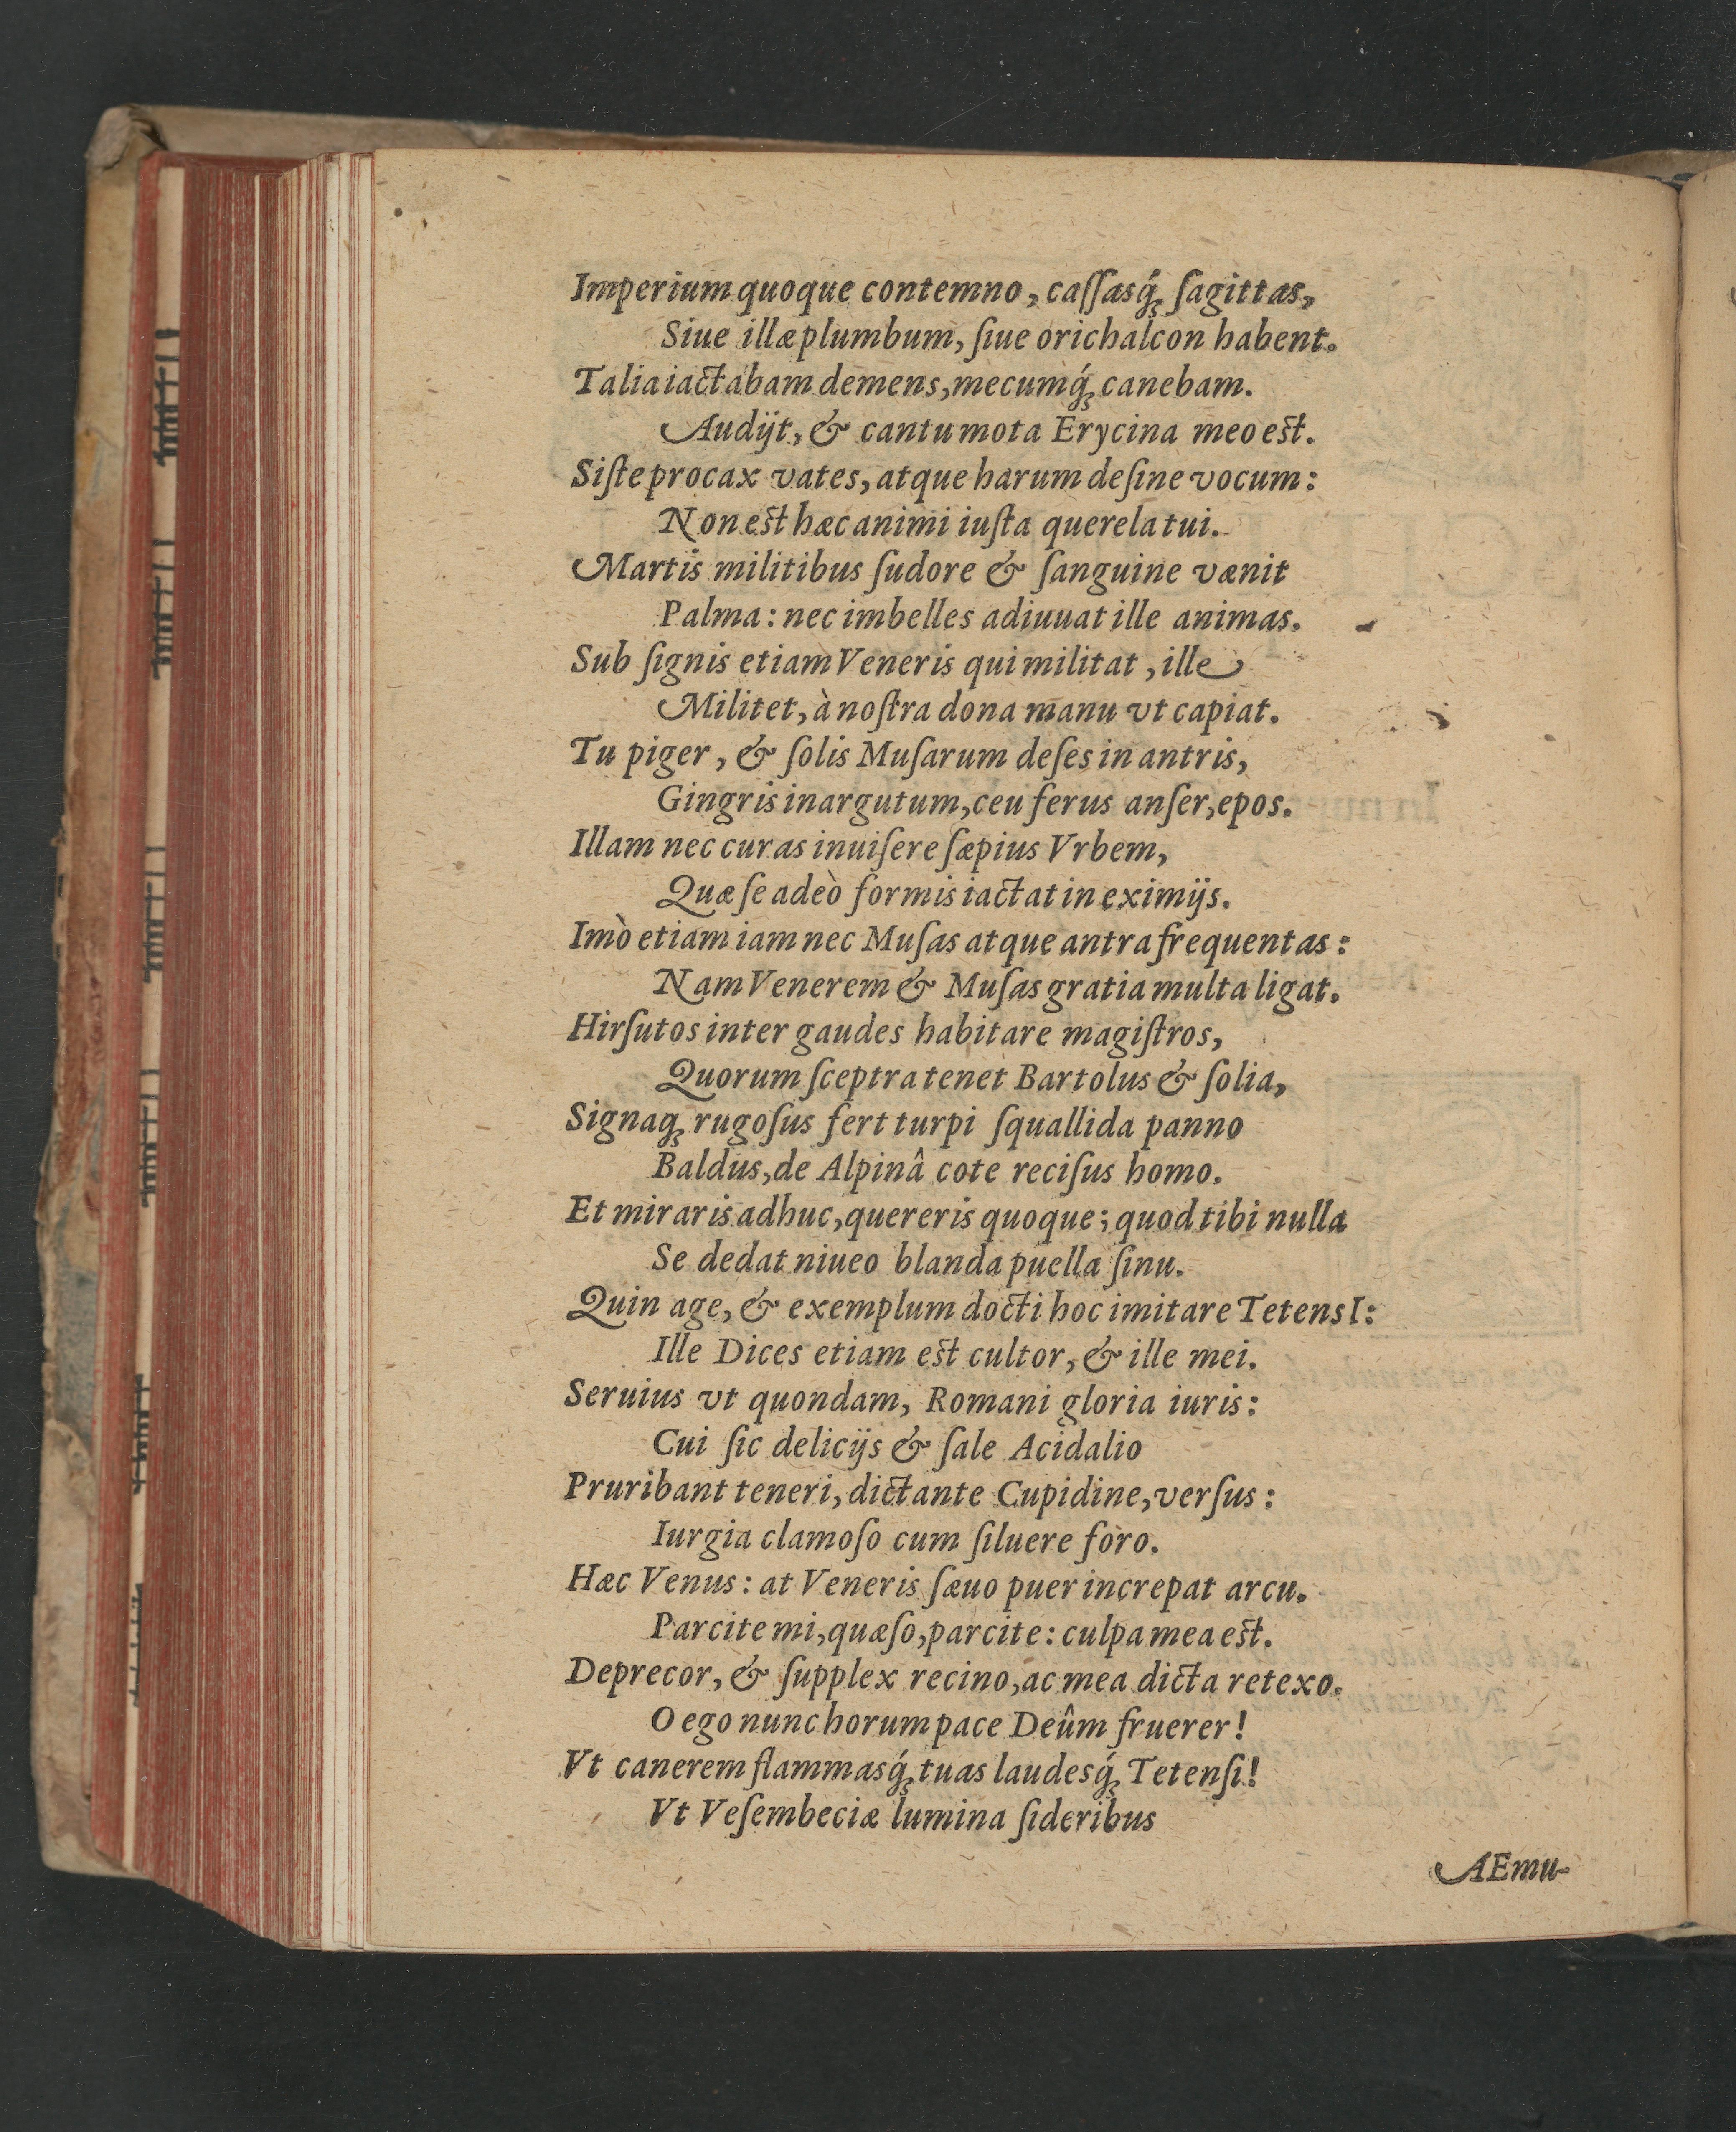 Imperium quoque contemno, caſſasq́; ſagittas,
Siue illæ plumbum, ſiue orichalcon habent.
Talia iactabam demens, mecumq́; canebam.
Audijt, & cantu mota Erycina meo est.
Siſte procax vates, atque harum deſine vocum:
Non est hæc animi iuſta querela tui.
Martis militibus ſudore & ſanguine vænit
Palma: nec imbelles adiuuat ille animas.
Sub ſignis etiam Veneris qui militat, ille
Militet, à noſtra dona manu vt capiat.
Tu piger, & ſolis Muſarum deſes in antris,
Gingris inargutum, ceu ferus anſer, epos.
Illam nec curas inuiſere ſæpius Vrbem,
Quæ ſe adeò formis iactat in eximijs.
Imò etiam iam nec Muſas atque antra frequentas:
Nam Venerem & Muſas gratia multa ligat.
Hirſutos inter gaudes habitare magiſtros,
Quorum ſceptra tenet Bartolus & ſolia,
Signaq; rugoſus fert turpi ſquallida panno
Baldus, de Alpinâ cote reciſus homo.
Et miraris adhuc, quereris quoque; quod tibi nulla
Se dedat niueo blanda puella ſinu.
Quin age, & exemplum docti hoc imitare TetensI:
Ille Dices etiam est cultor, & ille mei.
Seruius vt quondam, Romani gloria iuris:
Cui ſic delicijs & ſale Acidalio
Pruribant teneri, dictante Cupidine, verſus:
Iurgia clamoſo cum ſiluere foro.
Hæc Venus: at Veneris ſæuo puer increpat arcu.
Parcite mi, quæſo, parcite: culpa mea est.
Deprecor, & ſupplex recino, ac mea dicta retexo.
O ego nunc horum pace Deûm fruerer!
Vt canerem flammasq́; tuas laudesq́; Tetenſi!
Vt Veſembeciæ lumina ſideribus
AEmu-